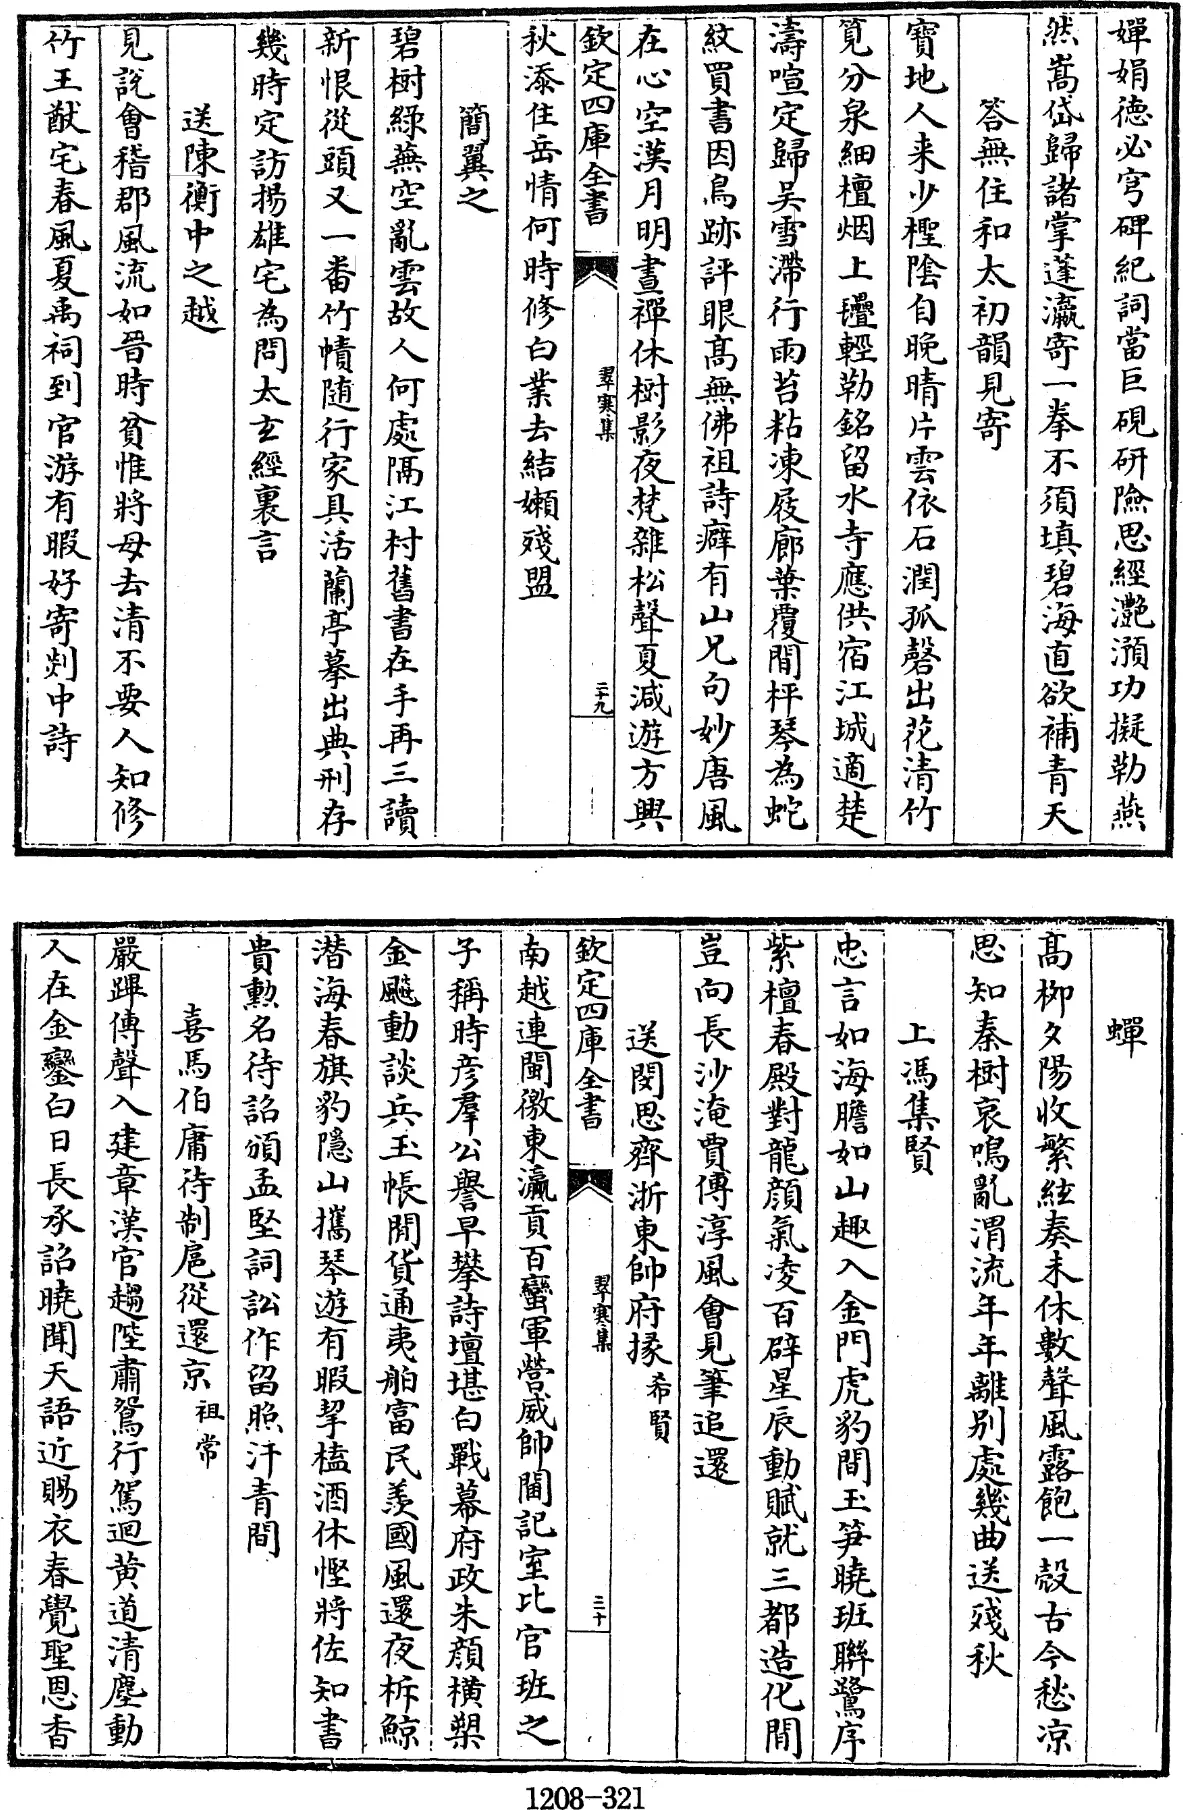 嬋娟德必穹碑紀詞當巨硯研險思經灔澦功擬勒燕
然嵩岱歸諸掌蓬瀛寄一拳不須填碧海直欲補青天
答無住和太初韻見寄
寶地人来少檉陰自晚晴片雲依石潤孤磬出花清竹
筧分泉細檀烟上㲲輕勒銘留水寺應供宿江城適楚
濤喧定歸吴雪滯行雨苔粘凍屐廊葉覆閒枰琴為蛇
紋買書因鳥跡評眼髙無佛祖詩癖有山兄句妙唐風
在心空漢月明晝禪休樹影夜梵雜松聲夏減遊方興
欽定四庫全書
翠寒集
二十九
秋添住岳情何時修白業去結嬾殘盟
簡翼之
碧樹緑蕪空亂雲故人何處隔江村舊書在手再三讀
新恨從頭又一番竹幘随行家具活蘭亭摹出典刑存
幾時定訪揚雄宅為問太玄經裏言
送陳衡中之越
見説會稽郡風流如晉時貧惟將母去清不要人知修
竹王猷宅春風夏禹祠到官游有暇好寄剡中詩
蟬
髙柳夕陽收繁絃奏未休數聲風露飽一殼古今愁凉
思知秦樹哀鳴亂渭流年年離别處幾曲送殘秋
上馮集賢
忠言如海膽如山趣入金門虎豹間玉笋曉班聯鷺序
紫檀春殿對龍顔氣凌百辟星辰動賦就三都造化閒
豈向長沙淹賈傅淳風會見筆追還
送閔思齊浙東帥府掾希賢
欽定四庫全書
翠寒集
三十
南越連閩徼東瀛貢百蠻軍營威帥閫記室比官班之
子稱時彦羣公譽早攀詩壇堪白戰幕府政朱顔横槊
金飈動談兵玉帳閒貨通夷舶富民羡國風還夜柝鯨
潜海春旗豹隱山攜琴遊有暇挈榼酒休慳將佐知書
貴勲名待詔頒孟堅詞訟作留照汗青間
喜馬伯庸待制扈從還京祖常
嚴蹕傳聲入建章漢官趨陛肅鴛行駕迴黄道清塵動
人在金鑾白日長承詔曉聞天語近賜衣春覺聖恩香
1208-321